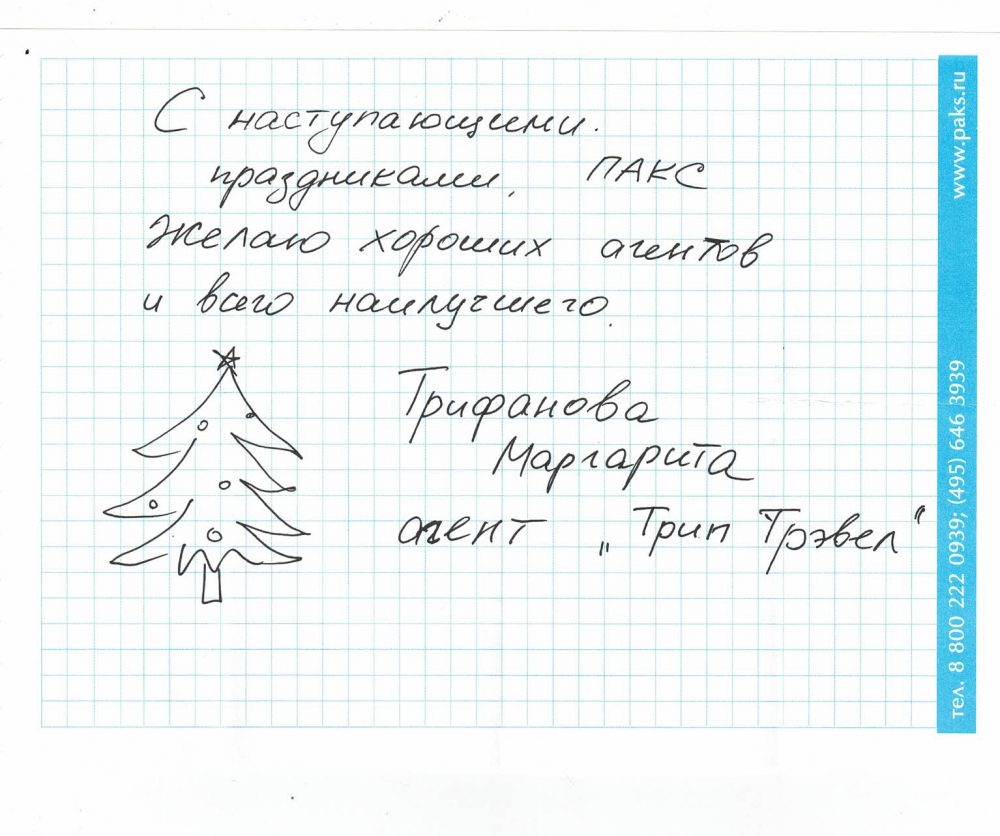 С наступающими.
праздниками, ПАКС
Желаю хороших агентов
и всего наилучшего.
Трифанова
Маргарита
агент „Трип Трэвел"
тел. 8 800 222 0939; (495) 646 3939
www.paks.ru